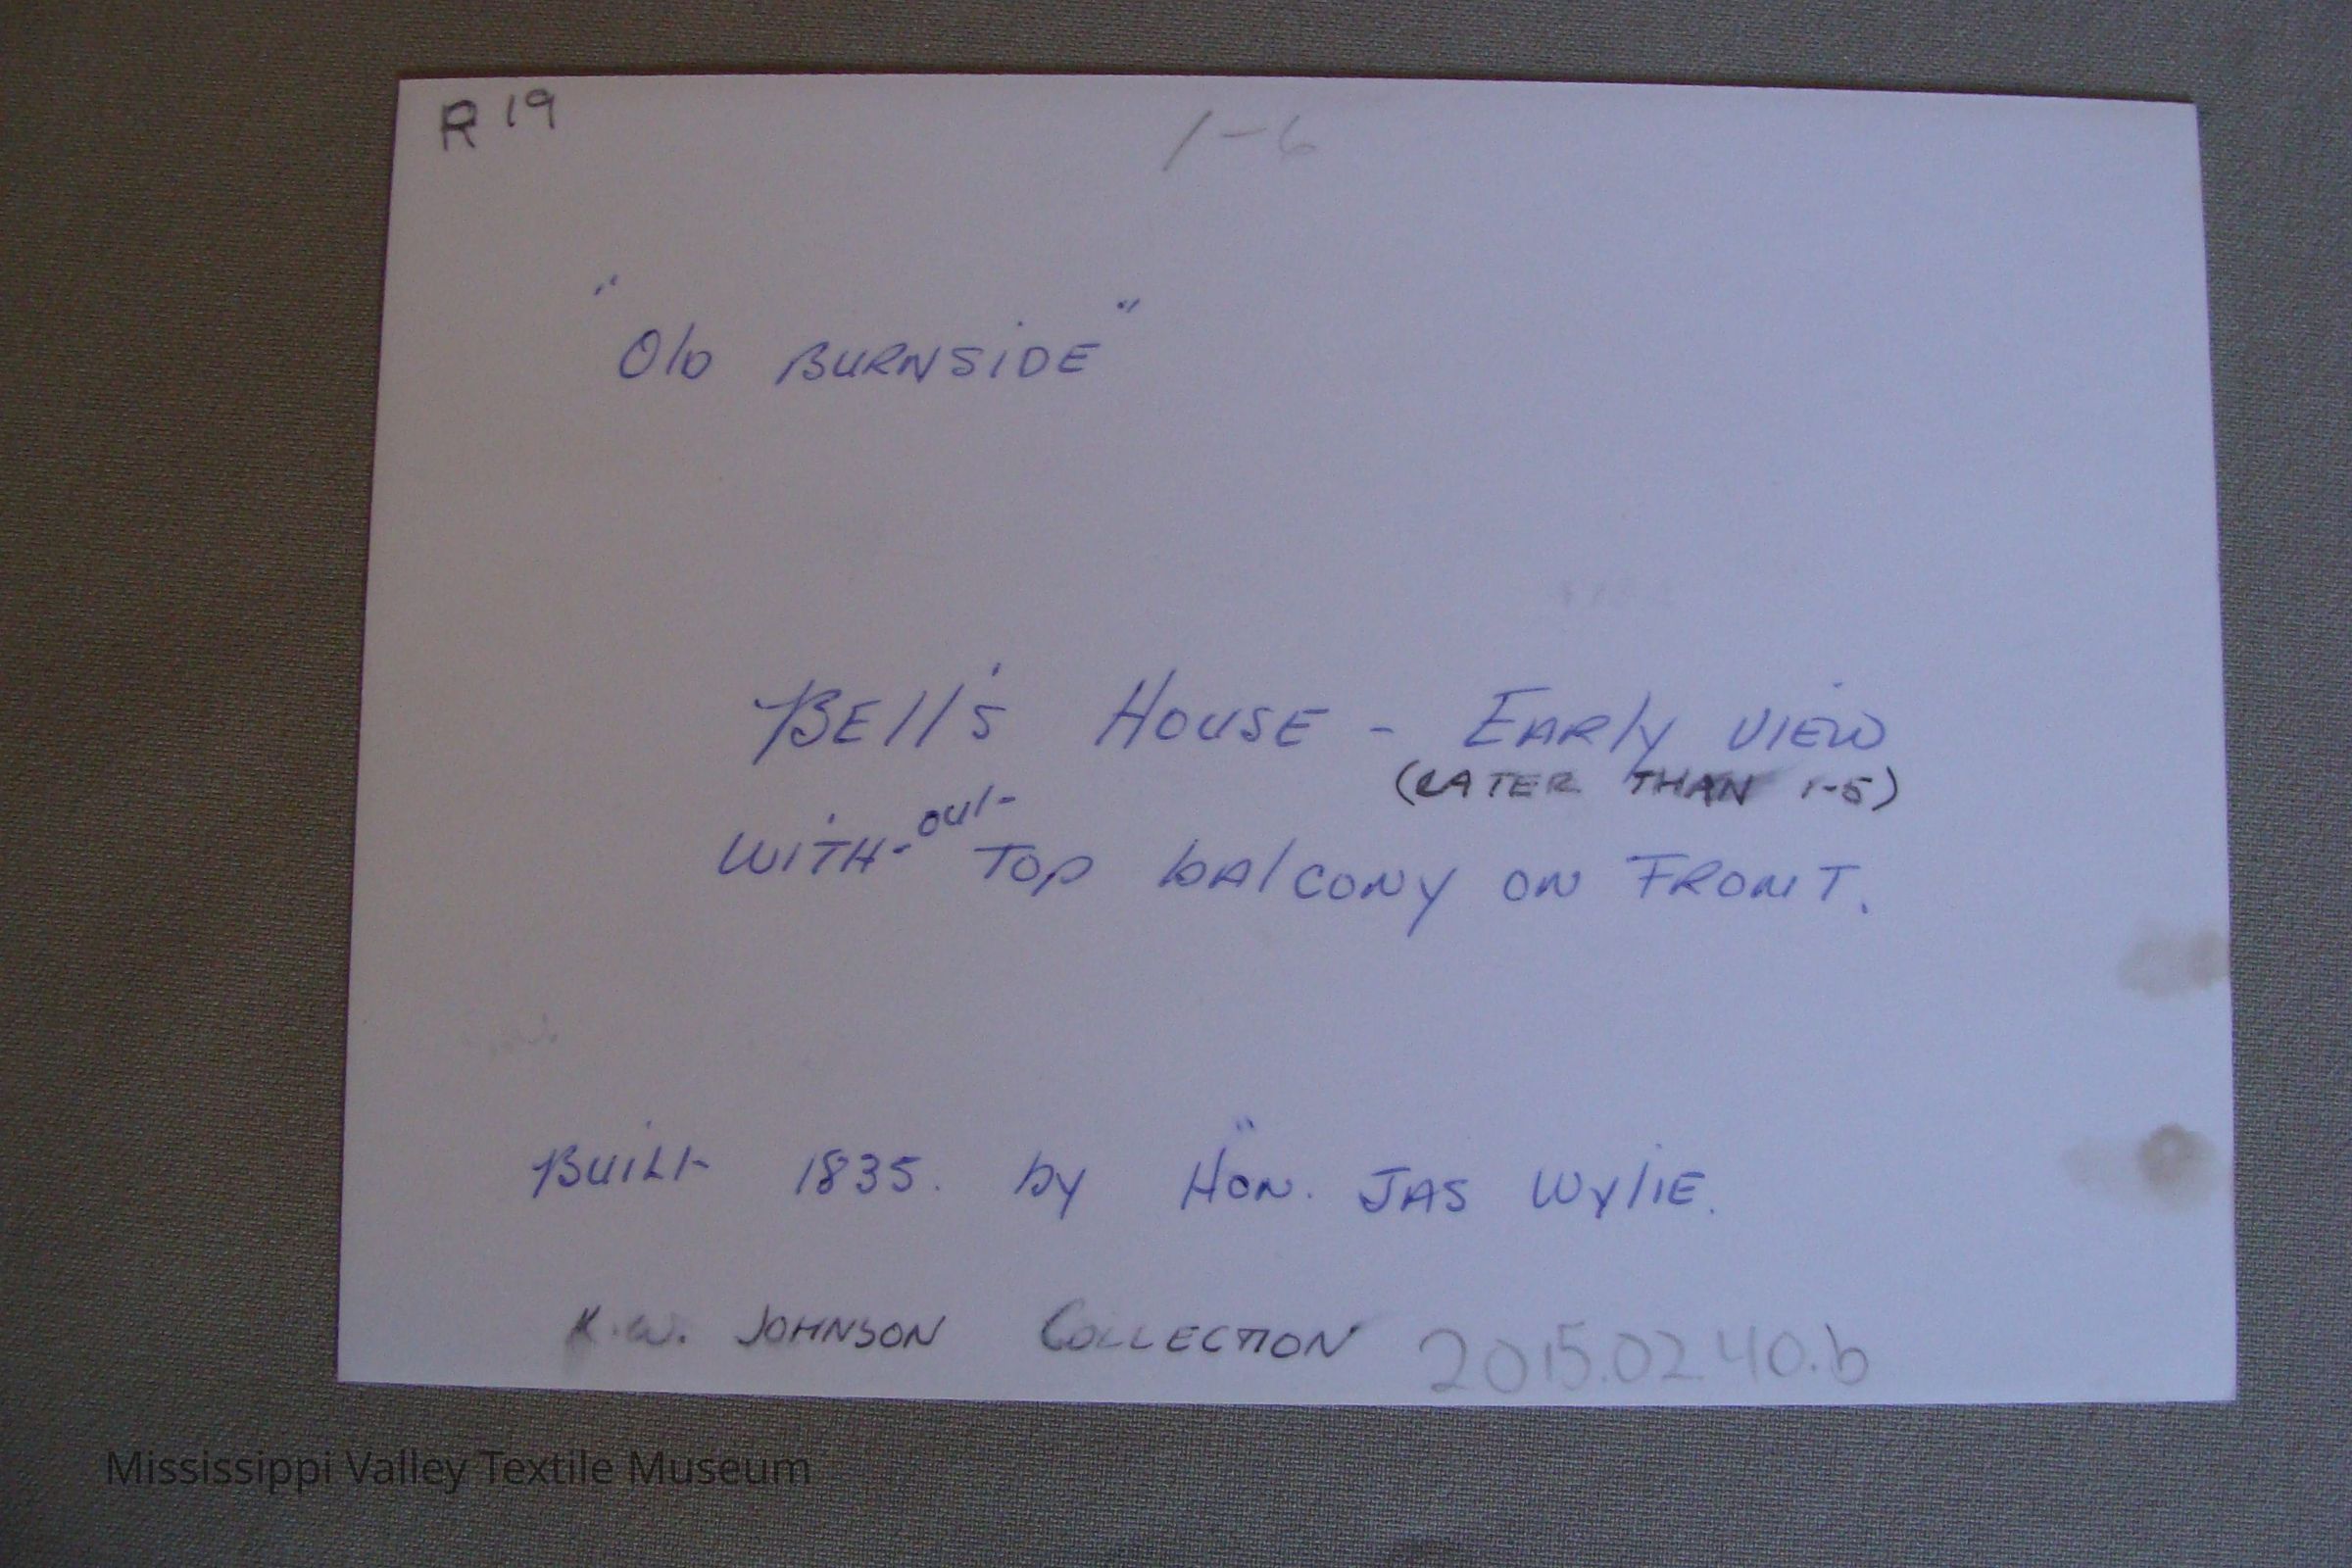 R 19
1-6
"Old BURNSiDE"
BEll's HOUSE - EARly VIEW
(LATER THAN 1-5)
WiTH-out TOP bAlCONY ON FRONT.
BuiLt 1835. by "HON. JAS WylIE.
K.W. JOHNSON COLLECTION 2015.02.40.b
Mississippi Valley Textile Museum